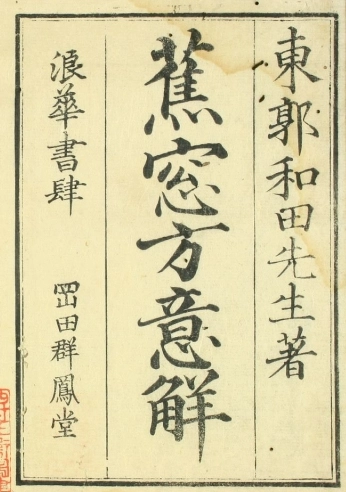 東郭和田先生著
蕉窓方意解
浪華書肆 岡田群鳳堂